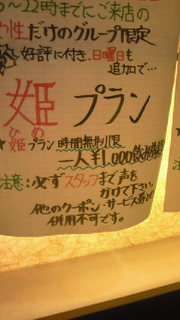 ～22時までにご来店の
女性だけのグループ限定
好評に付き、日曜日も
追加で…
姫プラン
ひめ
★姫プラン 時間無制限
一人¥1,000飲み放題
注意:必ずスタッフまで声を
かけて下さい。
他のクーポン・サービス券など
併用不可です。